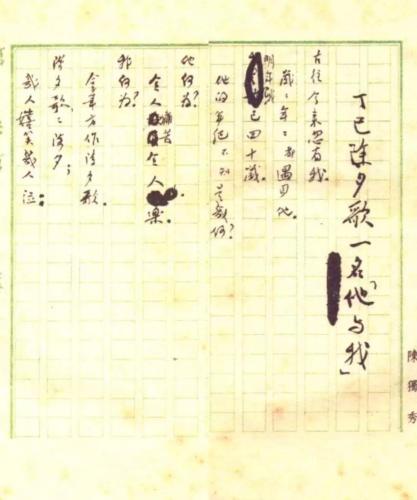 陳獨秀
丁巳除夕歌一名「他与我」
古往今来忽有我。
歲々年々都遇見他。
明年我已四十歲。
他的年纪不知是幾何?
他何为?
令人痛苦令人樂。
我何为?
拿筆方作除夕歌。
除夕歌々除夕;
幾人嬉笑幾人泣。